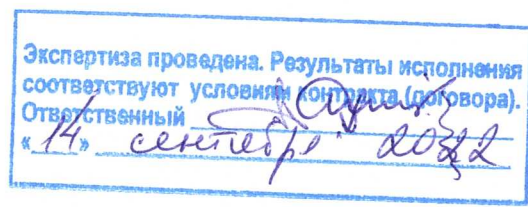 Экспертиза проведена. Результаты исполнения
соответствуют условиям контракта (договора).
Ответственный
«14» сентября 2022